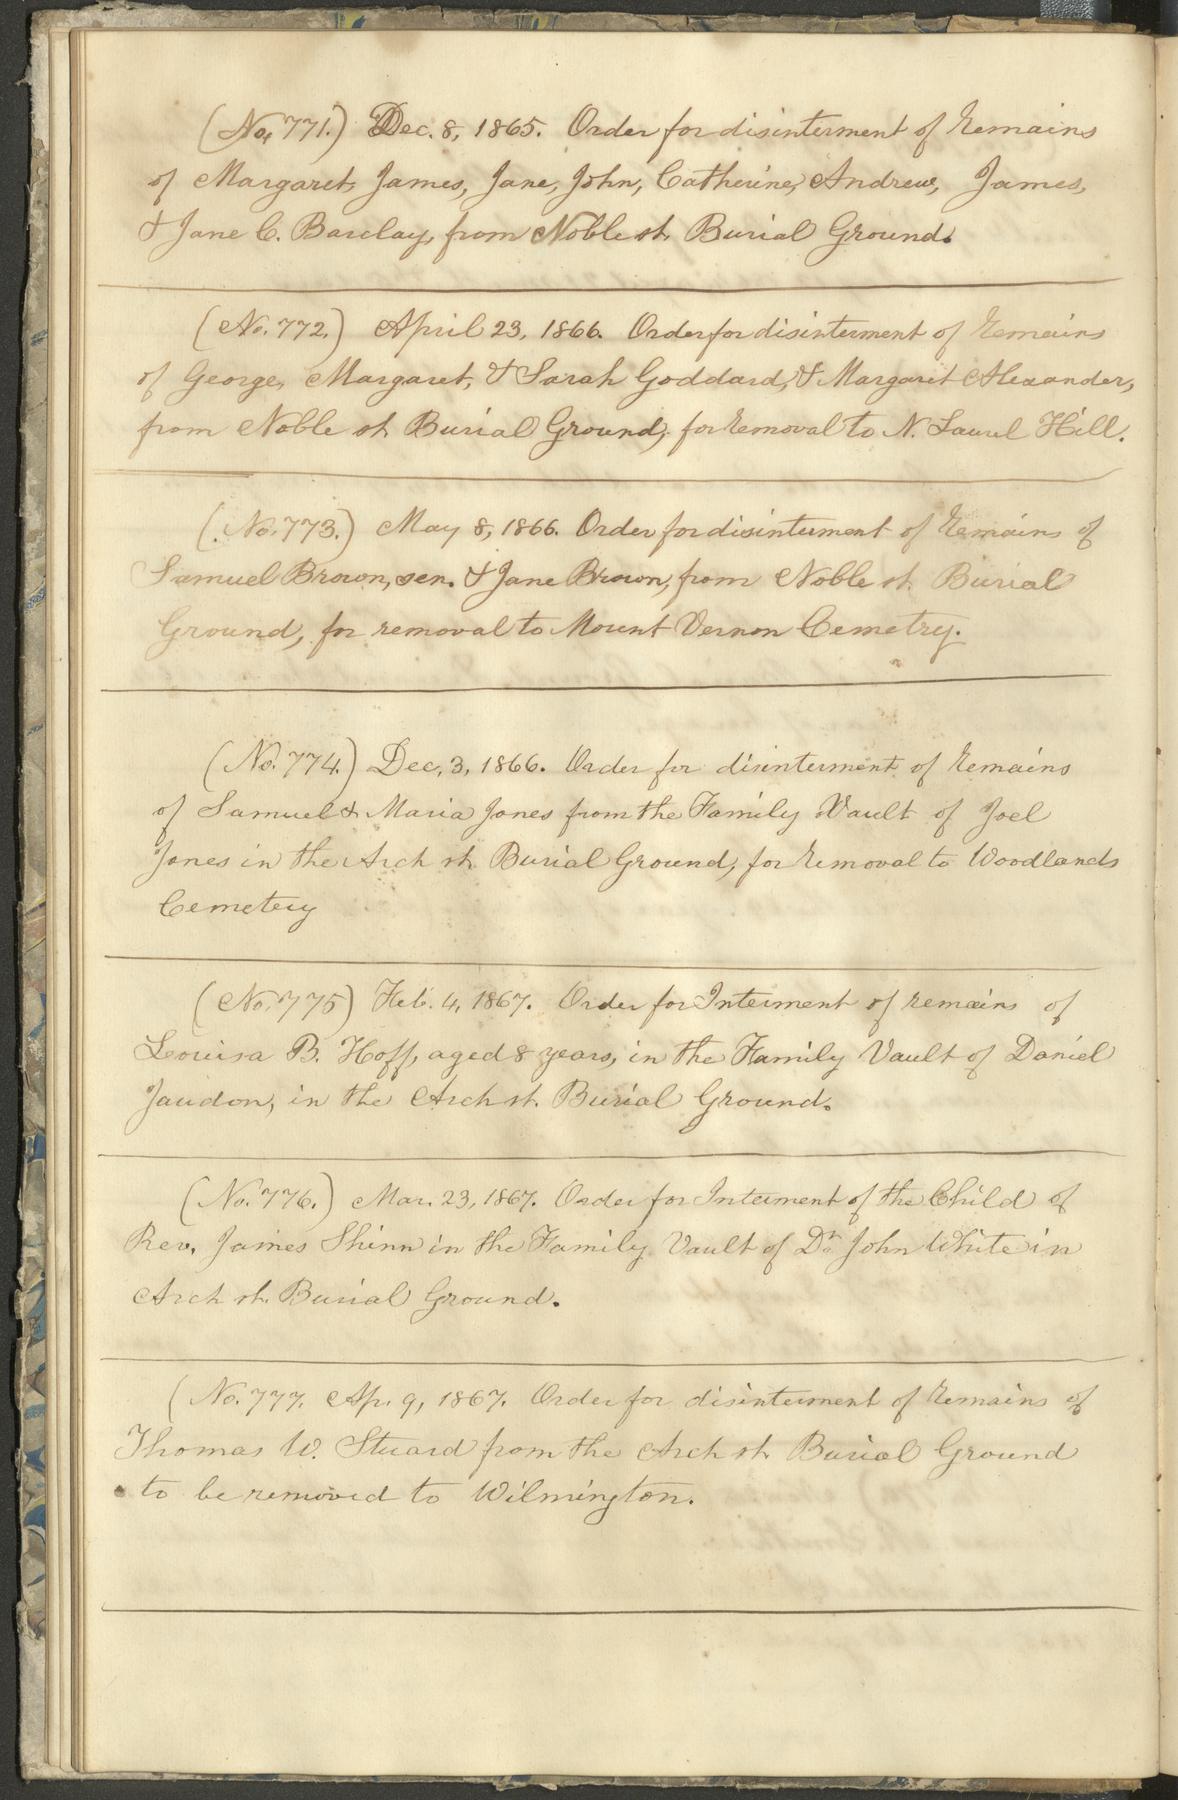 (No. 771.) Dec. 8, 1865. Order for disinterment of Remains
of Margaret, James, Jane, John, Catherine, Andrew, James,
& Jane C. Barclay, from Noble st. Burial Ground.
(No. 772.) April 23, 1866. Order for disinterment of Remains
of George, Margaret, & Sarah Goddard, & Margaret Alexander,
from Noble st. Burial Ground, for removal to N. Laurel Hill.
(No. 773.) May 8, 1866. Order for disinterment of Remains of
Samuel Brown, sen. & Jane Brown, from Noble st. Burial
Ground, for removal to Mount Vernon Cemetry.
(No. 774.) Dec. 3, 1866. Order for disinterment of Remains
of Samuel & Maria Jones from the Family Vault of Joel
Jones in the Arch st. Burial Ground, for removal to Woodlands
Cemetery
(No. 775) Feb. 4, 1867. Order for Interment of remains of
Louisa B. Hoff, aged 8 years, in the Family Vault of Daniel
Jaudon, in the Arch st. Burial Ground.
(No. 776.) Mar. 23, 1867. Order for Interment of the Child of
Rev. James Shinn in the Family Vault of Dr. John White in
Arch st. Burial Ground.
(No. 777. Ap. 9, 1867. Order for disinterment of Remains of
Thomas W. Stuard from the Arch st. Burial Ground
to be removed to Wilmington.